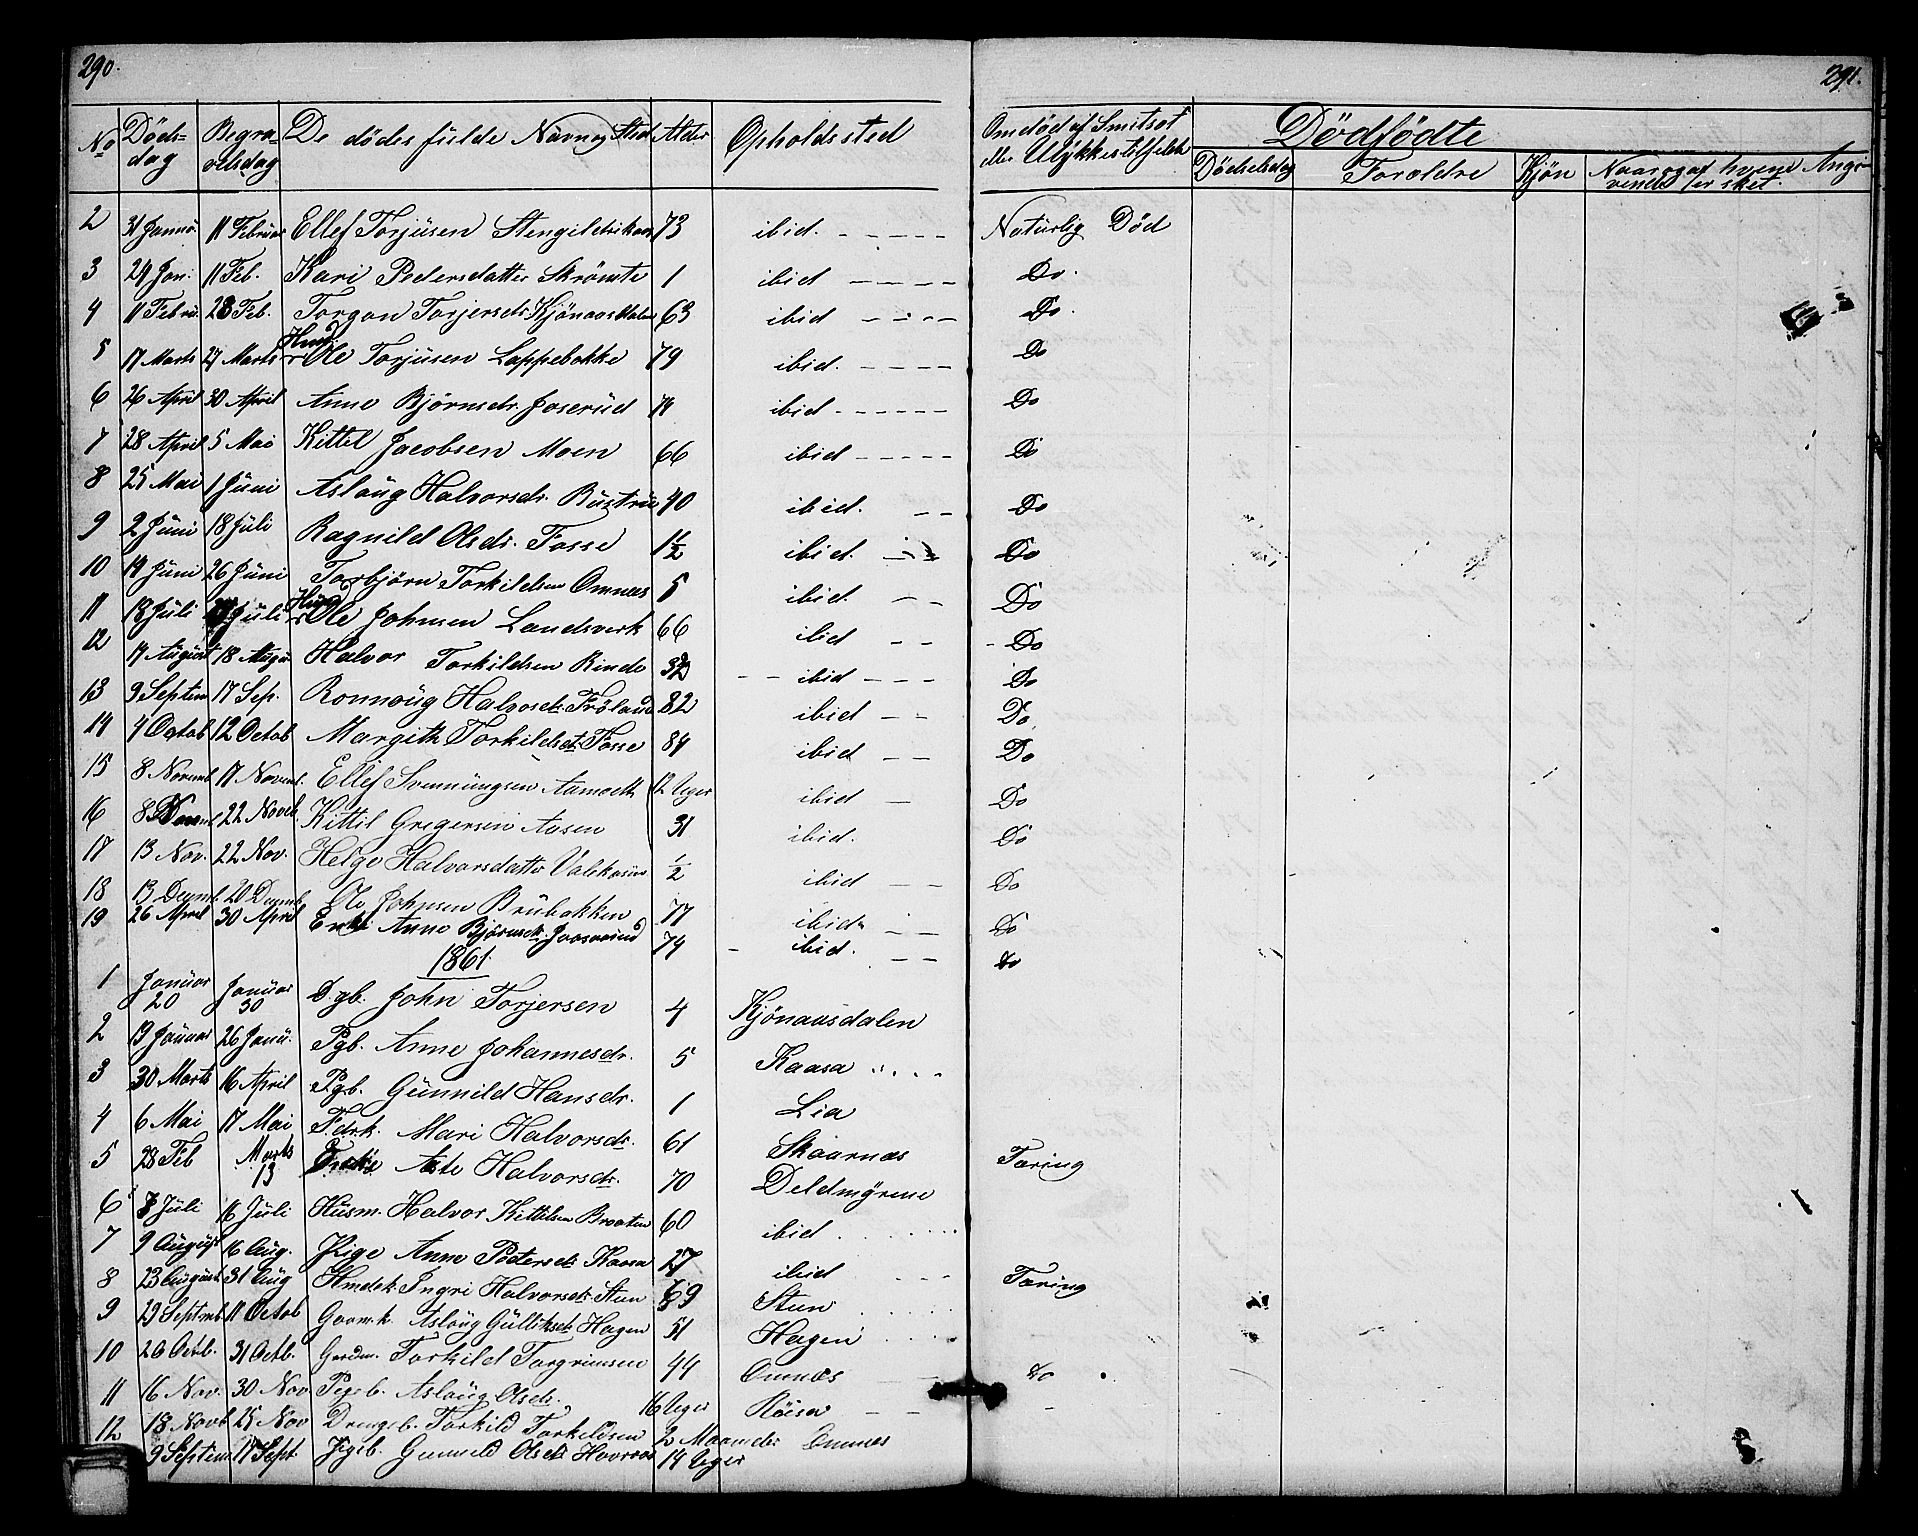 290.
291.
No Döds-dag Begravelsdag De dödes fulde Navn og Sted Alder Opholdssted Om död af Smitsot eller Ulÿkkestilfelde Dödfödte
Dödselsdag Foroldre Kjön Naar og af hvem Angivende er sket.
2 31 Janua. 11 Februar Ellef Torjüsen 73 ibid. Naturlig Död
3 29 Jan: 11 Feb. Kari Pedersdatter Skrömte 1 ibid Do.
4 11 Febru. 28 Feb. Torgon Torjersdr. Kjönaasdalen 63 ibid Do.
5 17 Marts 27 Marts Husm Ole Torjüsen Lappebokke 79 ibid. Do
6 26 April 30 April Anne Björnsdr. Joserüd 74 ibid. Do
7 28 April 5 Mai Kittel Jacobsen Moen 66 ibid Do
8 25 Mai 1 Jüni Aslaüg Halvorsdr. Büstrü 40 ibid. Do
9 2 Jüni 18 Jüli Ragnild Olsdr. Fosse 1 1/2 ibid. Do
10 19 Jüni 26 Jüni Torbjörn Torkildsen Omnæs 5 ibid. Do
11 18 Jüli Jüli Husm Ole Johnsen Landsverk 66 ibid Do
12 14 August 18 Augu Halvor Torkildsen Rinde 32 ibid Do
13 9 Septem 17 Sep. Ronnoüg Halvosdr. Fröland 82 ibid Do.
14 4 Octob 12 Octob Margith Torkildsdr. Fosse 84 ibid Do
15 8 Novemb 17 Novemb. Ellef Svennüngsen Aamoth 12 Uger ibid Do
16 8 Novemb 22 Noveb. Kittil Gregersen Aasen 31 ibid. Do
17 13 Nov. 22 Nov. Helge Halvorsdatter 1/2 ibid Do
18 13 Decemb 20 Decemb Ole Johnsen Brübakken 77 ibid Do
19 26 April 30 April Enke Anne Björnsdr. Joosaarüd 74 ibid. do
1861.
1 Januar 20 Janüar 30 D.gb. John Torjersen 4 Kjönaasdalen
2 19 Janüar 26 Janü. Pgb. Anne Johannesdr. 5 Kaasa
3 30 Marts 16 April Pgb. Günnild Hansdr. 1 Lia
4 6 Mai 17 Mai F.drk. Mari Halvorsdr. 61 Skaarnæs
5 28 Feb Marts 13 Enke Aste Halvorsdr. 70 Deldmÿrene Tæring
6 8 Jüli 16 Jüli Hüsm. Halvor Kittilsen Braaten 60 ibid
7 9 August 16 Aug. Pige Anne Pedersdr. Kaasa 27 ibid
8 23 August 31 Aug Hmdsk. Ingri Halvorsdr. Stün 69 Stun Tæring
9 29 Septmb 11 Octob Gaamk. Aslaüg Güllikdr. Hagen 51 Hagen
10 20 Octb. 31 Octb. Gardm. Torkild Torgrimsen 44 Omnæs do
11 16 Nov. 30 Nov Pigeb. Aslaüg Olsdr. 16 Uger Röisa
12 18 Novb 25 Nov Drengeb. Torkild Torkildsen 2 Maaneder Omnæs
9 Septem 17 Sept. Pigeb. Gunnild Olsdr. 14 Uger